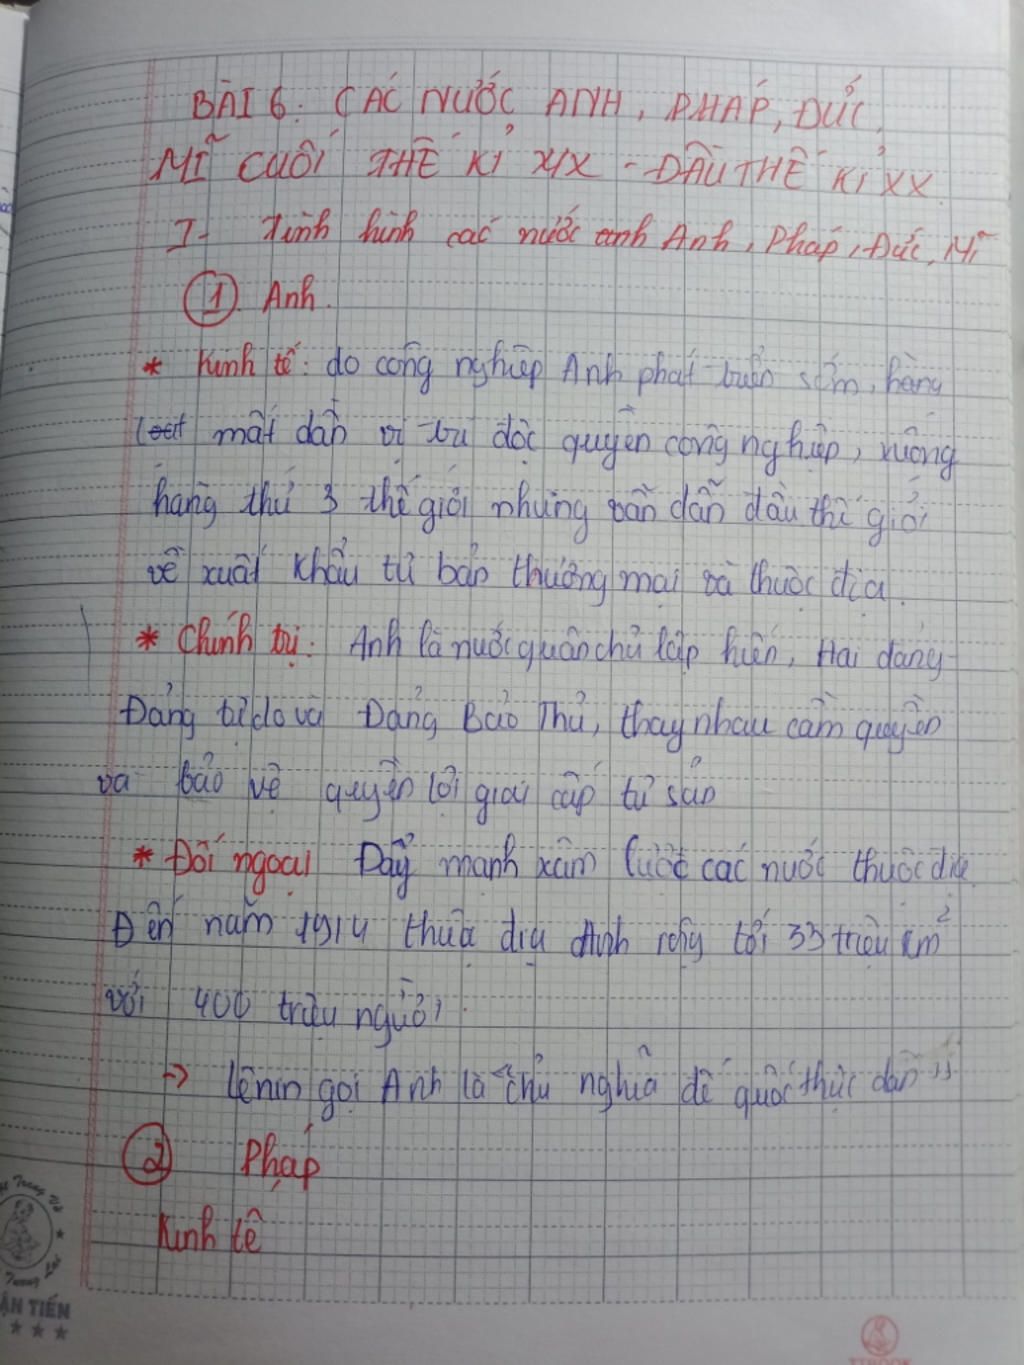 BÀI 6: CÁC NƯỚC ANH, PHÁP, ĐỨC,
MĨ CUỐI THẾ KỈ XIX - ĐẦU THẾ KỈ XX
I- Tình hình các nước anh Anh, Pháp, Đức, Mĩ
① Anh.
* Kinh tế: do công nghiệp Anh phát triển sớm, hàng
loạt mất dần vị trí độc quyền công nghiệp, xuống
hàng thứ 3 thế giới nhưng vẫn dẫn đầu thế giới
về xuất khẩu tư bản thương mại và thuộc địa.
* Chính trị: Anh là nước quân chủ lập hiến, Hai đảng
Đảng tự do và Đảng Bảo Thủ, thay nhau cầm quyền
và bảo vệ quyền lợi giai cấp tư sản
* Đối ngoại Đẩy mạnh xâm lược các nước thuộc địa
Đến năm 1914 thuộc địa Anh rộng tới 33 triệu km²
với 400 triệu người.
-> Lênin gọi Anh là "chủ nghĩa đế quốc thực dân"
② Pháp
Kinh tế
TIẾN